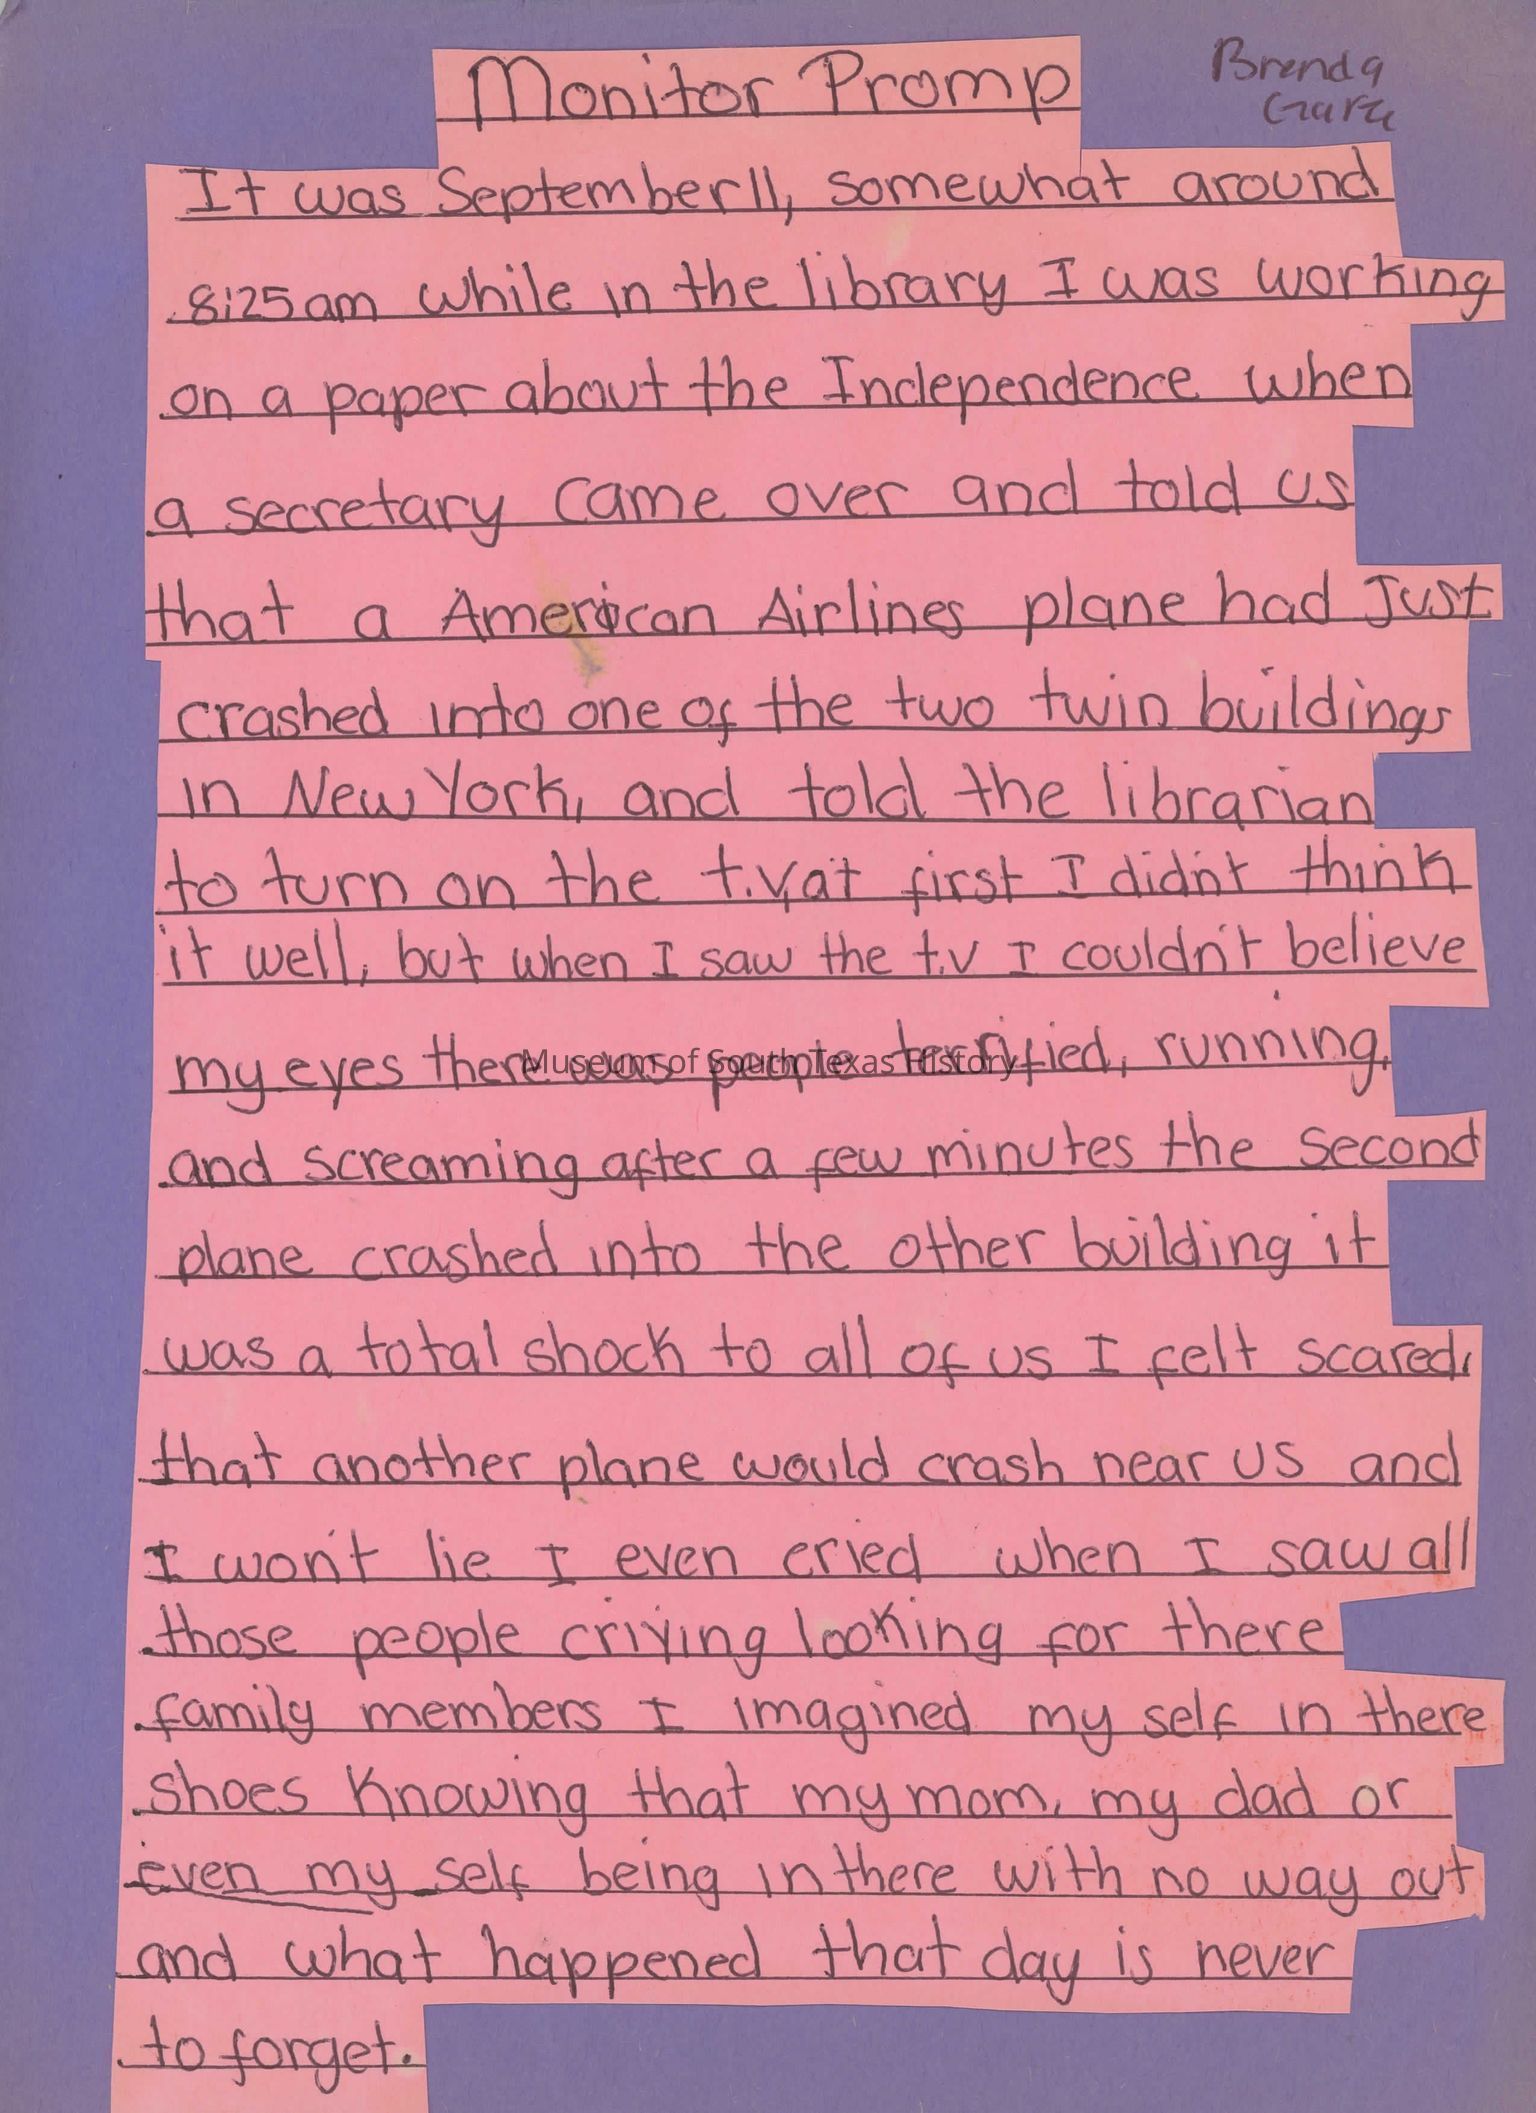 Monitor Promp
Brenda
Garza
It was September 11, somewhat around
8:25am while in the library I was working
on a paper about the Independence when
a secretary came over and told us
that a American Airlines plane had Just
crashed into one of the two twin buildings
in New York, and told the librarian
to turn on the t.v, at first I didn't think
it well, but when I saw the t.v I couldn't believe
my eyes there was people terrified, running,
Museum of South Texas History
and screaming after a few minutes the second
plane crashed into the other building it
was a total shock to all of us I felt scared,
that another plane would crash near us and
I won't lie I even cried when I saw all
those people criying looking for there
family members I imagined my self in there
shoes knowing that my mom, my dad or
even my self being in there with no way out
and what happened that day is never
to forget.